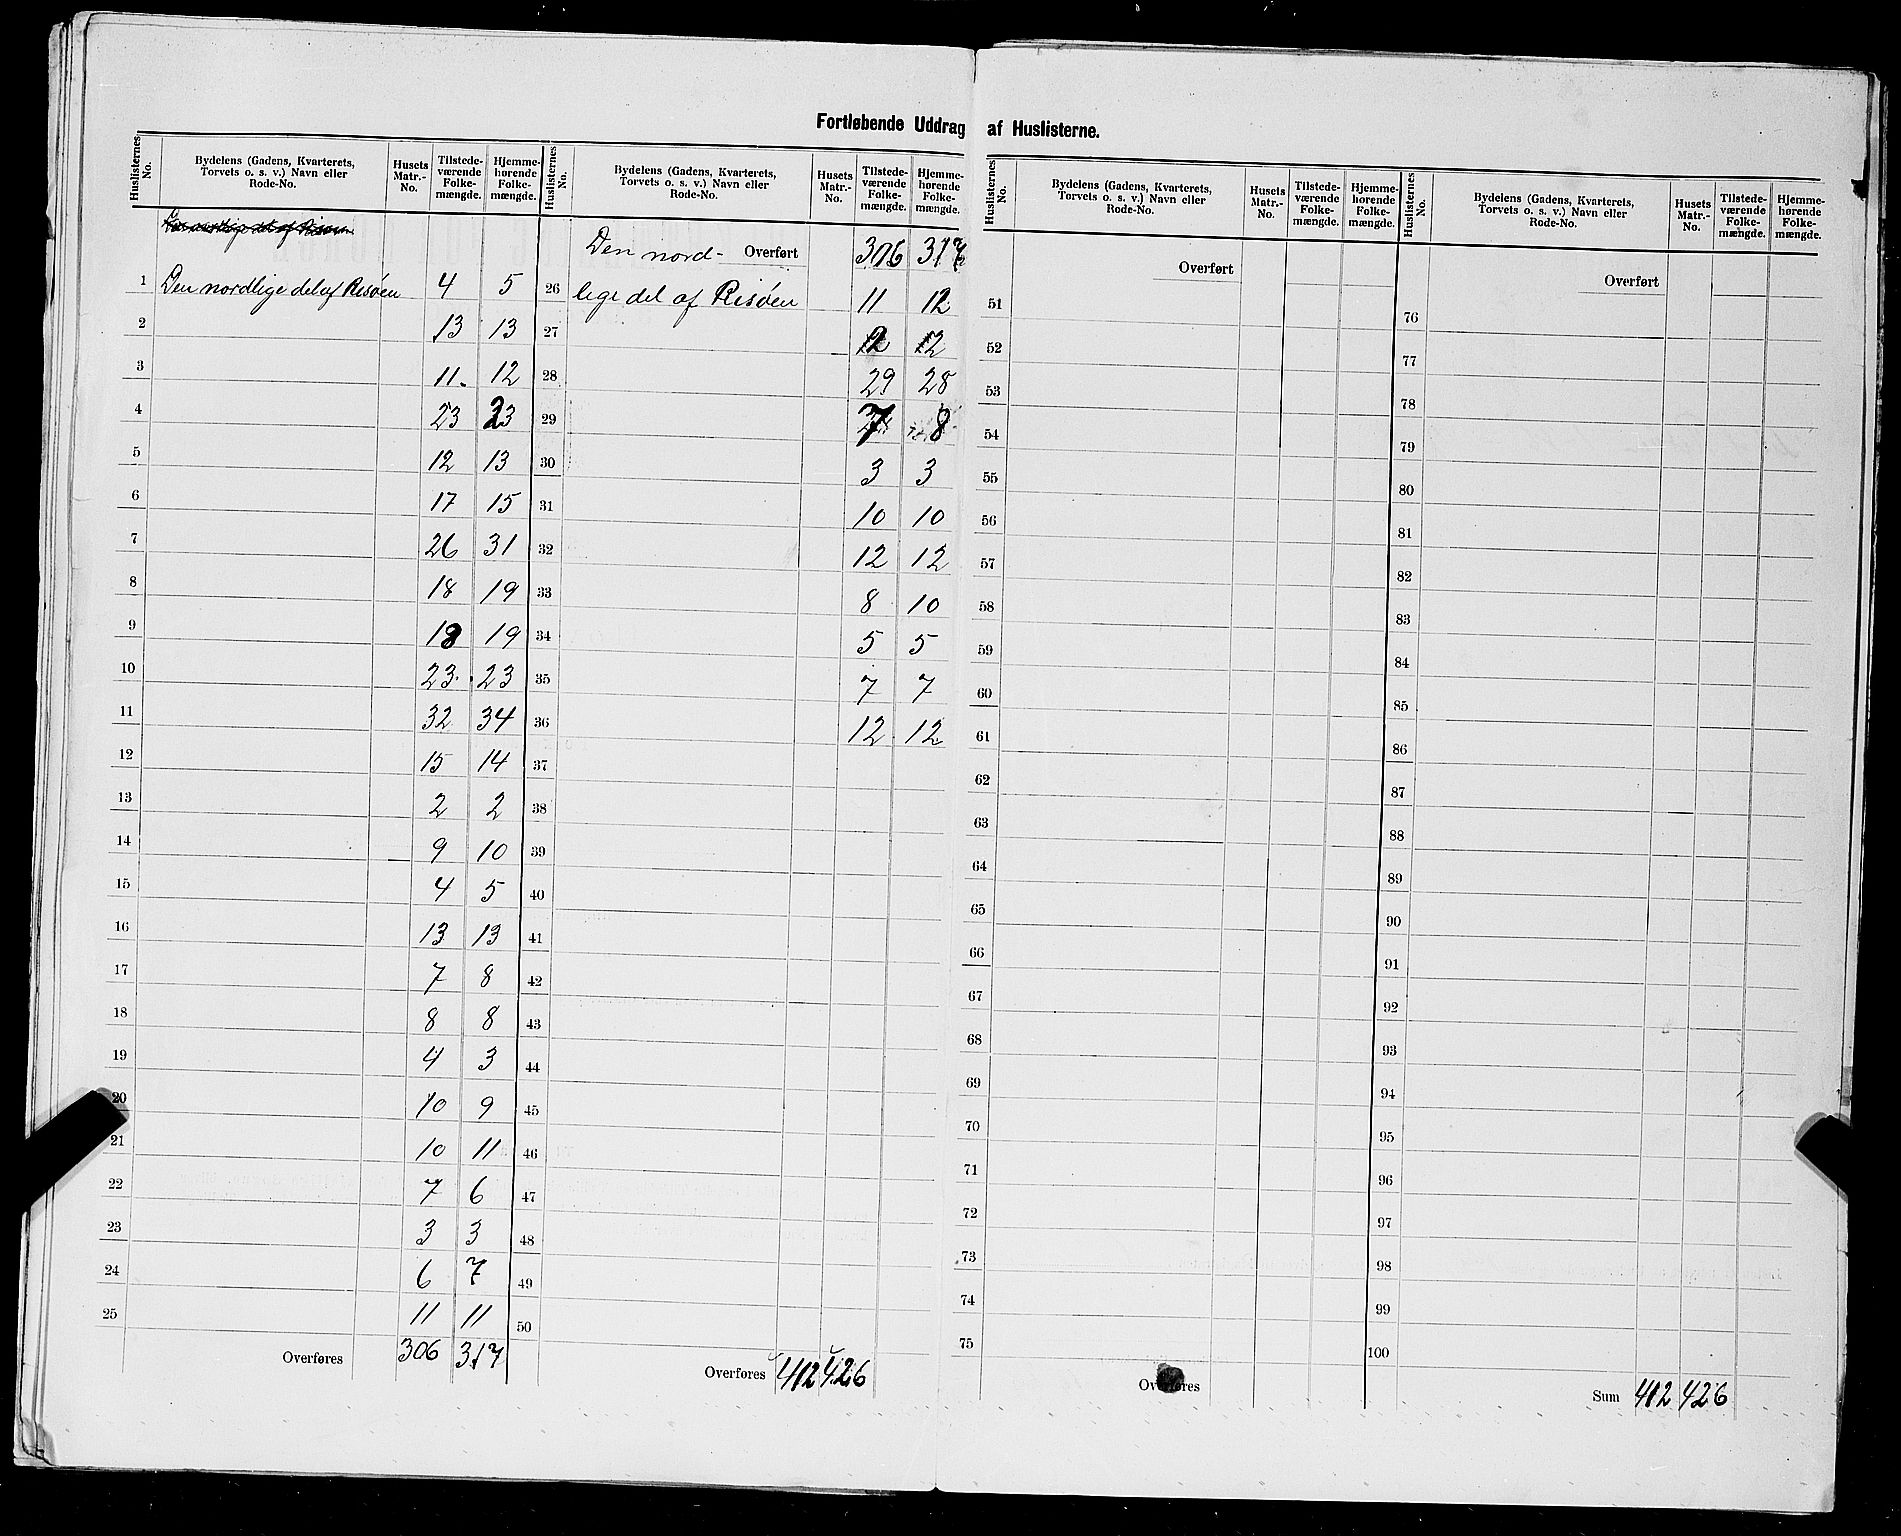 Fortløbende Uddrag af Huslisterne.
Huslisternes No. | Bydelens (Gadens, Kvarterets, Torvets o. s. v.) Navn eller Rode-No. | Husets Matr.-No. | Tilstede-værende Folke-mængde. | Hjemme-hørende Folke-mængde.
1 Den nordlige del af Risøen 4 5
2 13 13
3 11. 12
4 23 23
5 12 13
6 17 15
7 26 31
8 18 19
9 18 19
10 23 23
11 32 34
12 15 14
13 2 2
14 9 10
15 4 5
16 13 13
17 7 8
18 8 8
19 4 3
20 10 9
21 10 11
22 7 6
23 3 3
24 6 7
25 11 11
Overføres 306 317
Huslisternes No. | Bydelens (Gadens, Kvarterets, Torvets o. s. v.) Navn eller Rode-No. | Husets Matr.-No. | Tilstede-værende Folke-mængde. | Hjemme-hørende Folke-mængde.
Den nord- Overført 306 317
26 lige del af Risøen 11 12
27 12 12
28 29 28
29 7 8
30 3 3
31 10 10
32 12 12
33 8 10
34 5 5
35 7 7
36 12 12
37
38
39
40
41
42
43
44
45
46
47
48
49
50
Overføres 412 426
Huslisternes No. | Bydelens (Gadens, Kvarterets, Torvets o. s. v.) Navn eller Rode-No. | Husets Matr.-No. | Tilstede-værende Folke-mængde. | Hjemme-hørende Folke-mængde.
Overført
51
52
53
54
55
56
57
58
59
60
61
62
63
64
65
66
67
68
69
70
71
72
73
74
75
Overføres
Huslisternes No. | Bydelens (Gadens, Kvarterets, Torvets o. s. v.) Navn eller Rode-No. | Husets Matr.-No. | Tilstede-værende Folke-mængde. | Hjemme-hørende Folke-mængde.
Overført
76
77
78
79
80
81
82
83
84
85
86
87
88
89
90
91
92
93
94
95
96
97
98
99
100
Sum 412 426